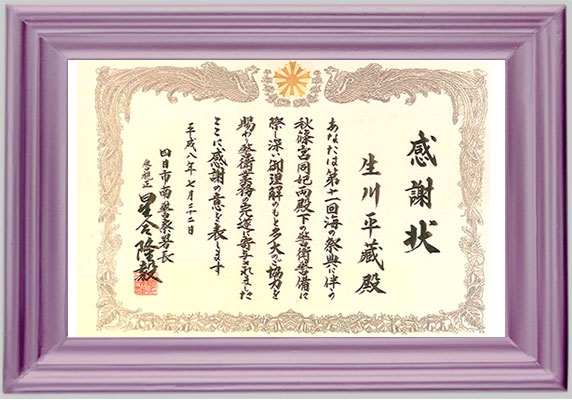 感謝状
生川平蔵殿
あなたは第十一回海の祭典に伴う
秋篠宮同妃両殿下の警衛警備に
際し深い御理解のもと多大のご協力を
賜り警衛業務の完遂に寄与されました
ここに感謝の意を表します
平成八年七月二十二日
四日市南警察署長
警視正 星合隆毅